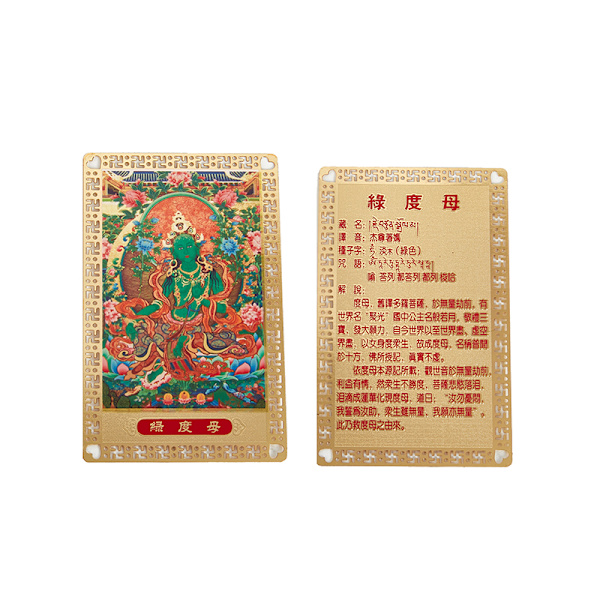 綠度母
綠度母
藏 名:
譯 音: 杰尊著瑪
種子字: (綠色)
咒 語:
嗡 答列 都答列 都列 梭哈
解 說:
度母,舊譯多羅菩薩,於無量劫前,有
世界名“聚光”國中公主名般若月。敬禮三
寶,發大願力,自今世界以至世界盡、虛空
界盡,以女身度衆生,故成度母,名稱普聞
於十方,佛所授記,眞實不虛。
依度母本源記所載:觀世音於無量劫前,
利益有情,然衆生不勝度,菩薩悲愍落泪,
泪滴成蓮華化現度母,道曰:“汝勿憂悶,
我誓爲汝助,衆生雖無量,我願亦無量”。
此乃救度母之由來。